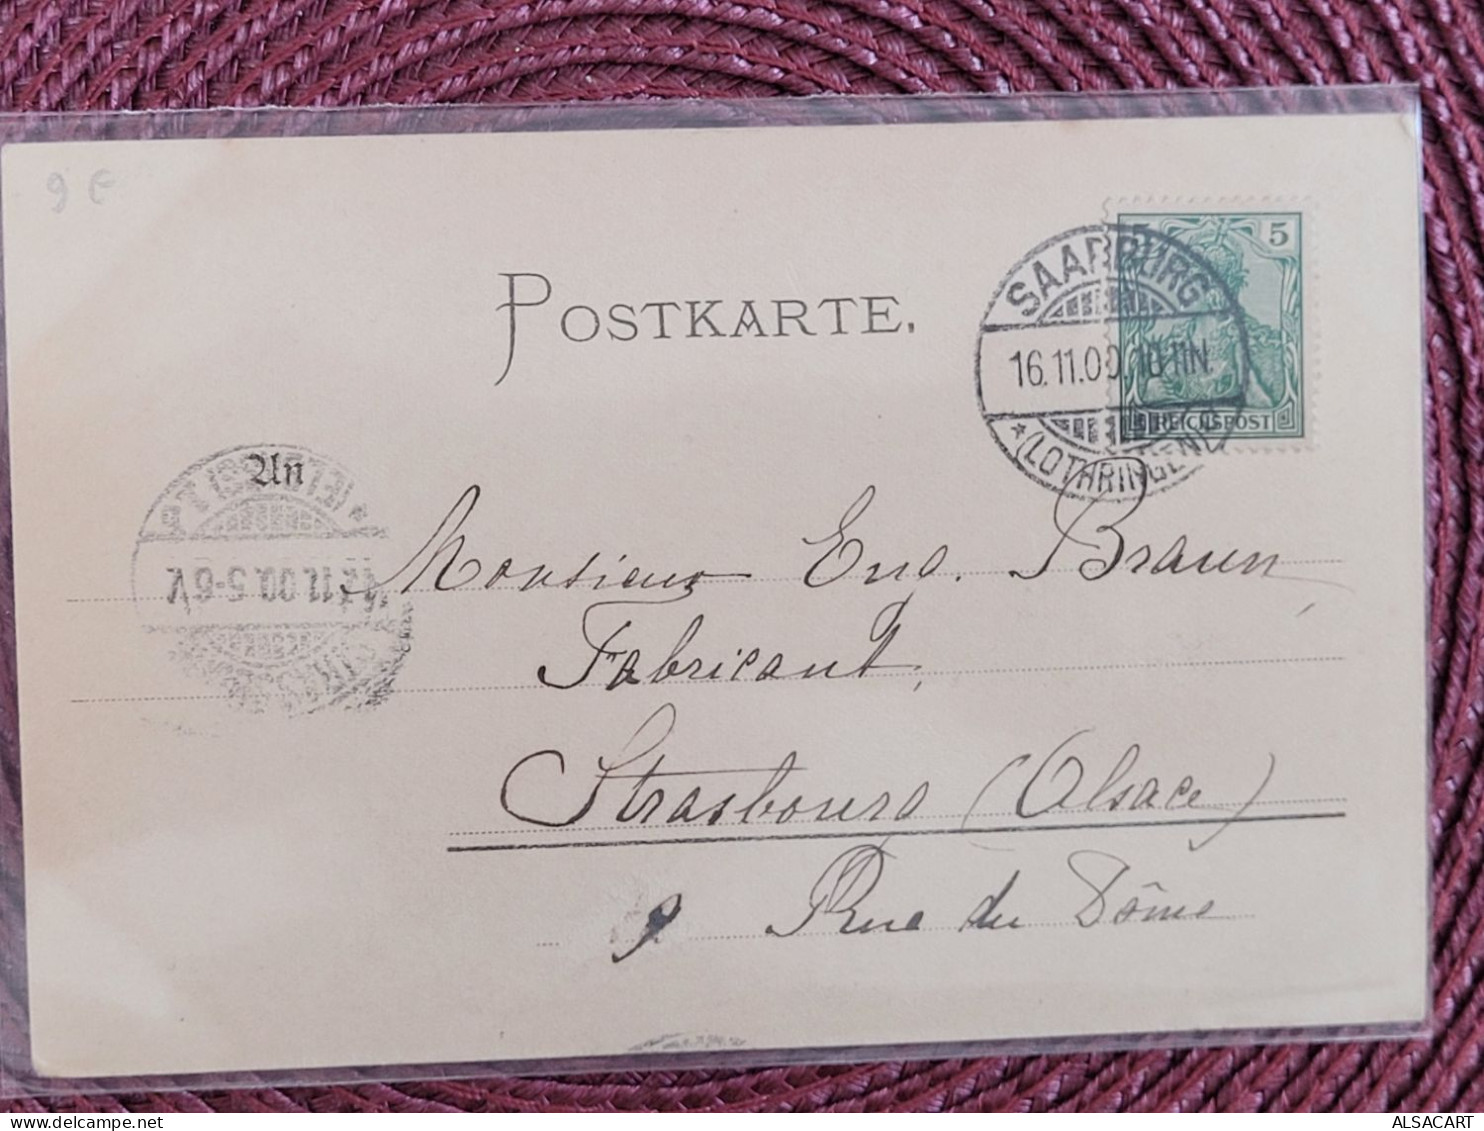 9 €
POSTKARTE.
5
SAARBURG
16.11.00. 10-11N.
* (LOTHRINGEN)
REICHSPOST
An
17.11.00. 5-6V.
Monsieur Eug. Braun
Fabricant,
Strasbourg (Alsace)
9 Rue du Dôme
ALSACART